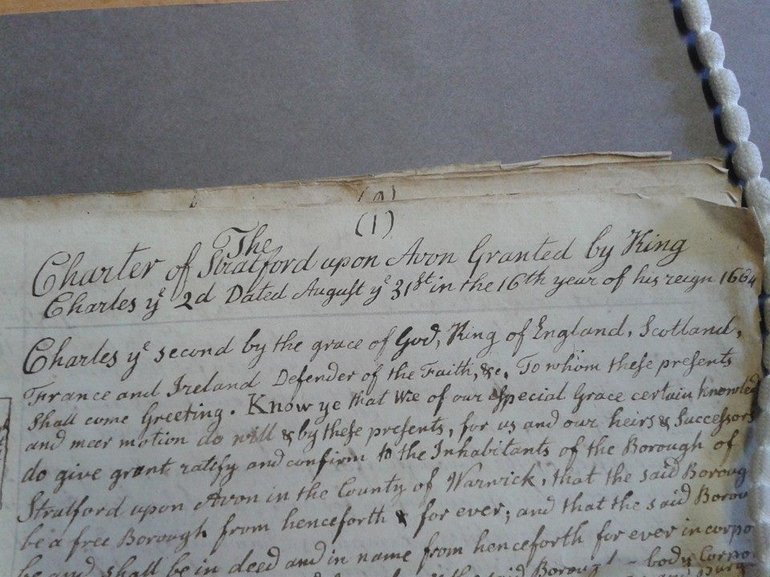 (1)
The
Charter of Stratford upon Avon Granted by King
Charles yᵉ 2d Dated August yᵉ 31st in the 16th year of his reign 1664
Charles yᵉ second by the grace of God, King of England, Scotland,
France and Ireland Defender of the Faith, &c. To whom these presents
Shall come Greeting. Know ye that We of our especial Grace certain knowled
and meer motion do will & by these presents, for us and our heirs & Successors
do give grant, ratify and confirm to the Inhabitants of the Borough of
Stratford upon Avon in the County of Warwick, that the said Boroug
be a free Borough from henceforth & for ever; and that the said Borou
be and shall be in deed and in name from henceforth for ever incorpo
the said Borough body Corpo